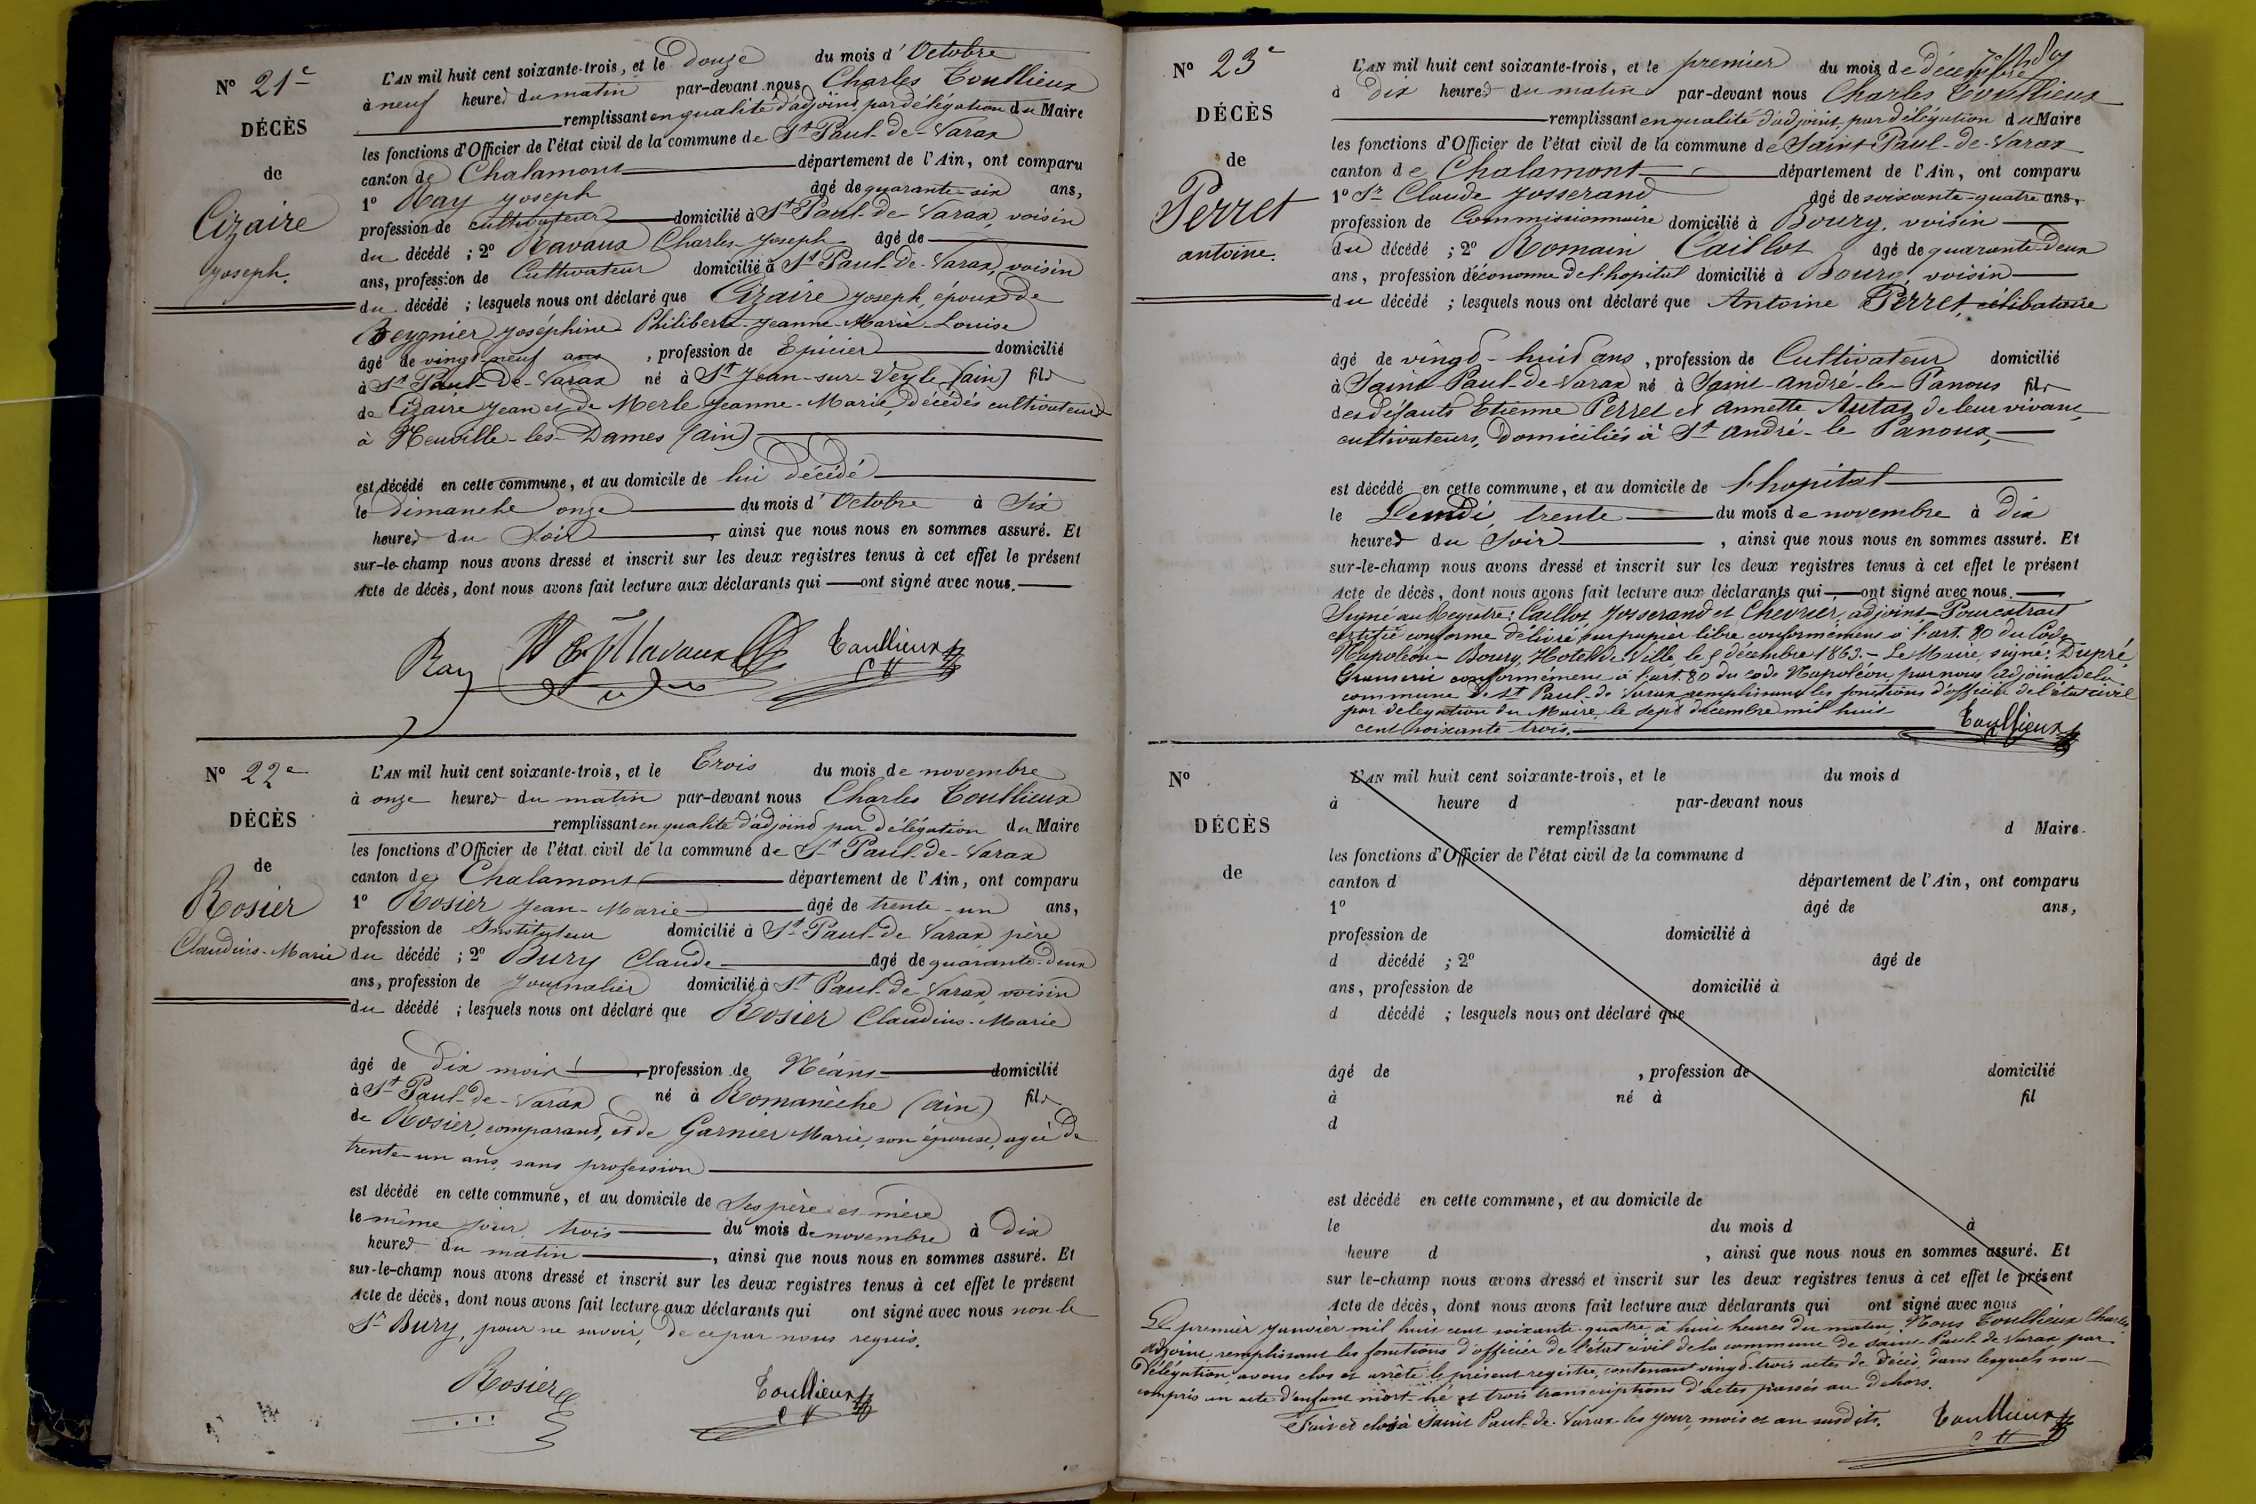 N° 21e
DÉCÈS
de
Cizaire
Joseph.
L'AN mil huit cent soixante-trois, et le douze du mois d'Octobre
à neuf heures du matin par-devant nous Charles Toullieux
remplissant en qualité d'adjoint par délégation du Maire
les fonctions d'Officier de l'état civil de la commune de St Paul-de-Varax
canton de Chalamont département de l'Ain, ont comparu
1° Ray Joseph âgé de quarante-six ans,
profession de cultivateur domicilié à St Paul-de-Varax, voisin
du décédé ; 2° Ravaux Charles-Joseph âgé de
ans, profession de Cultivateur domicilié à St Paul-de-Varax, voisin
du décédé ; lesquels nous ont déclaré que Cizaire Joseph, époux de
Beygnier Joséphine Philiberte-Jeanne-Marie-Louise
âgé de vingt-neuf ans, profession de Epicier domicilié
à St Paul-de-Varax né à St Jean-sur-Veyle (ain) fils
de Cizaire Jean et de Merle Jeanne-Marie, décédés cultivateurs
à Neuville-les-Dames (ain)
est décédé en cette commune, et au domicile de lui décédé
le dimanche onze du mois d'Octobre à Six
heures du Soir, ainsi que nous nous en sommes assuré. Et
sur-le-champ nous avons dressé et inscrit sur les deux registres tenus à cet effet le présent
Acte de décès, dont nous avons fait lecture aux déclarants qui ont signé avec nous.
Ray Ravaux Toullieux
N° 22e
DÉCÈS
de
Rosier
Claudius-Marie
L'AN mil huit cent soixante-trois, et le Trois du mois de novembre
à onze heures du matin par-devant nous Charles Toullieux
remplissant en qualité d'adjoint par délégation du Maire
les fonctions d'Officier de l'état civil de la commune de St Paul-de-Varax
canton de Chalamont département de l'Ain, ont comparu
1° Rosier Jean-Marie âgé de trente-un ans,
profession de Instituteur domicilié à St Paul-de-Varax, père
du décédé ; 2° Bury Claude âgé de quarante-deux
ans, profession de Journalier domicilié à St Paul-de-Varax, voisin
du décédé ; lesquels nous ont déclaré que Rosier Claudius-Marie
âgé de dix mois, profession de Néant domicilié
à St Paul-de-Varax né à Romanèche (ain) fils
de Rosier, comparant, et de Garnier Marie, son épouse, agée de
trente-un ans, sans profession
est décédé en cette commune, et au domicile de Ses père et mère
le même jour, trois du mois de novembre à Dix
heures du matin, ainsi que nous nous en sommes assuré. Et
sur-le-champ nous avons dressé et inscrit sur les deux registres tenus à cet effet le présent
Acte de décès, dont nous avons fait lecture aux déclarants qui ont signé avec nous non le
Sr Bury, pour ne savoir, de ce par nous requis.
Rosier Toullieux
N° 23e
DÉCÈS
de
Perret
antoine.
L'AN mil huit cent soixante-trois, et le premier du mois de décembre
à Dix heures du matin par-devant nous Charles Toullieux
remplissant en qualité d'adjoint, par délégation du Maire
les fonctions d'Officier de l'état civil de la commune de Saint-Paul-de-Varax
canton de Chalamont département de l'Ain, ont comparu
1° Sr Claude Josserand âgé de soixante-quatre ans,
profession de Commissionnaire domicilié à Bourg, voisin
du décédé ; 2° Romain Caillot âgé de quarante-deux
ans, profession d'économe de l'hopital domicilié à Bourg, voisin
du décédé ; lesquels nous ont déclaré que Antoine Perret, célibataire
âgé de vingt-huit ans, profession de Cultivateur domicilié
à Saint-Paul-de-Varax né à Saint-andré-le-Panoux fils
des défunts Etienne Perret et annette Autas, de leur vivant
cultivateurs, domiciliés à St andré-le Panoux,
est décédé en cette commune, et au domicile de l'hopital
le Lundi, trente du mois de novembre à Dix
heures du Soir, ainsi que nous nous en sommes assuré. Et
sur-le-champ nous avons dressé et inscrit sur les deux registres tenus à cet effet le présent
Acte de décès, dont nous avons fait lecture aux déclarants qui ont signé avec nous.
Signé au Registre : Caillot, Josserand et Chevrier, adjoint. Pour extrait
certifié conforme délivré sur papier libre conformément à l'art. 80 du Code
Napoléon – Bourg, Hotel de Ville, le 5 décembre 1863. – Le Maire, signé : Dupré.
Transcrit conformément à l'art. 80 du code Napoléon par nous adjoint de la
commune de St Paul-de Varax remplissant les fonctions d'officier de l'état civil
par délégation du Maire, le sept décembre mil huit
cent soixante trois. Toullieux
N°
DÉCÈS
de
L'AN mil huit cent soixante-trois, et le du mois d
à heure d par-devant nous
remplissant d Maire
les fonctions d'Officier de l'état civil de la commune d
canton d département de l'Ain, ont comparu
1° âgé de ans,
profession de domicilié à
d décédé ; 2° âgé de
ans, profession de domicilié à
d décédé ; lesquels nous ont déclaré que
âgé de , profession de domicilié
à né à fil
d
est décédé en cette commune, et au domicile de
le du mois d à
heure d , ainsi que nous nous en sommes assuré. Et
sur le-champ nous avons dressé et inscrit sur les deux registres tenus à cet effet le présent
Acte de décès, dont nous avons fait lecture aux déclarants qui ont signé avec nous
Le premier Janvier mil huit cent soixante-quatre à huit heures du matin, Nous Toullieux Charles,
adjoint, remplissant les fonctions d'officier de l'état civil de la commune de Saint-Paul-de-Varax par
délégation, avons clos et arrêté le présent registre, contenant vingt-trois actes de décès, dans lesquels sont
compris un acte d'enfant mort-né et trois transcriptions d'actes passés au dehors.
Fait et clos à Saint Paul-de-Varax les jour, mois et an susdits. Toullieux